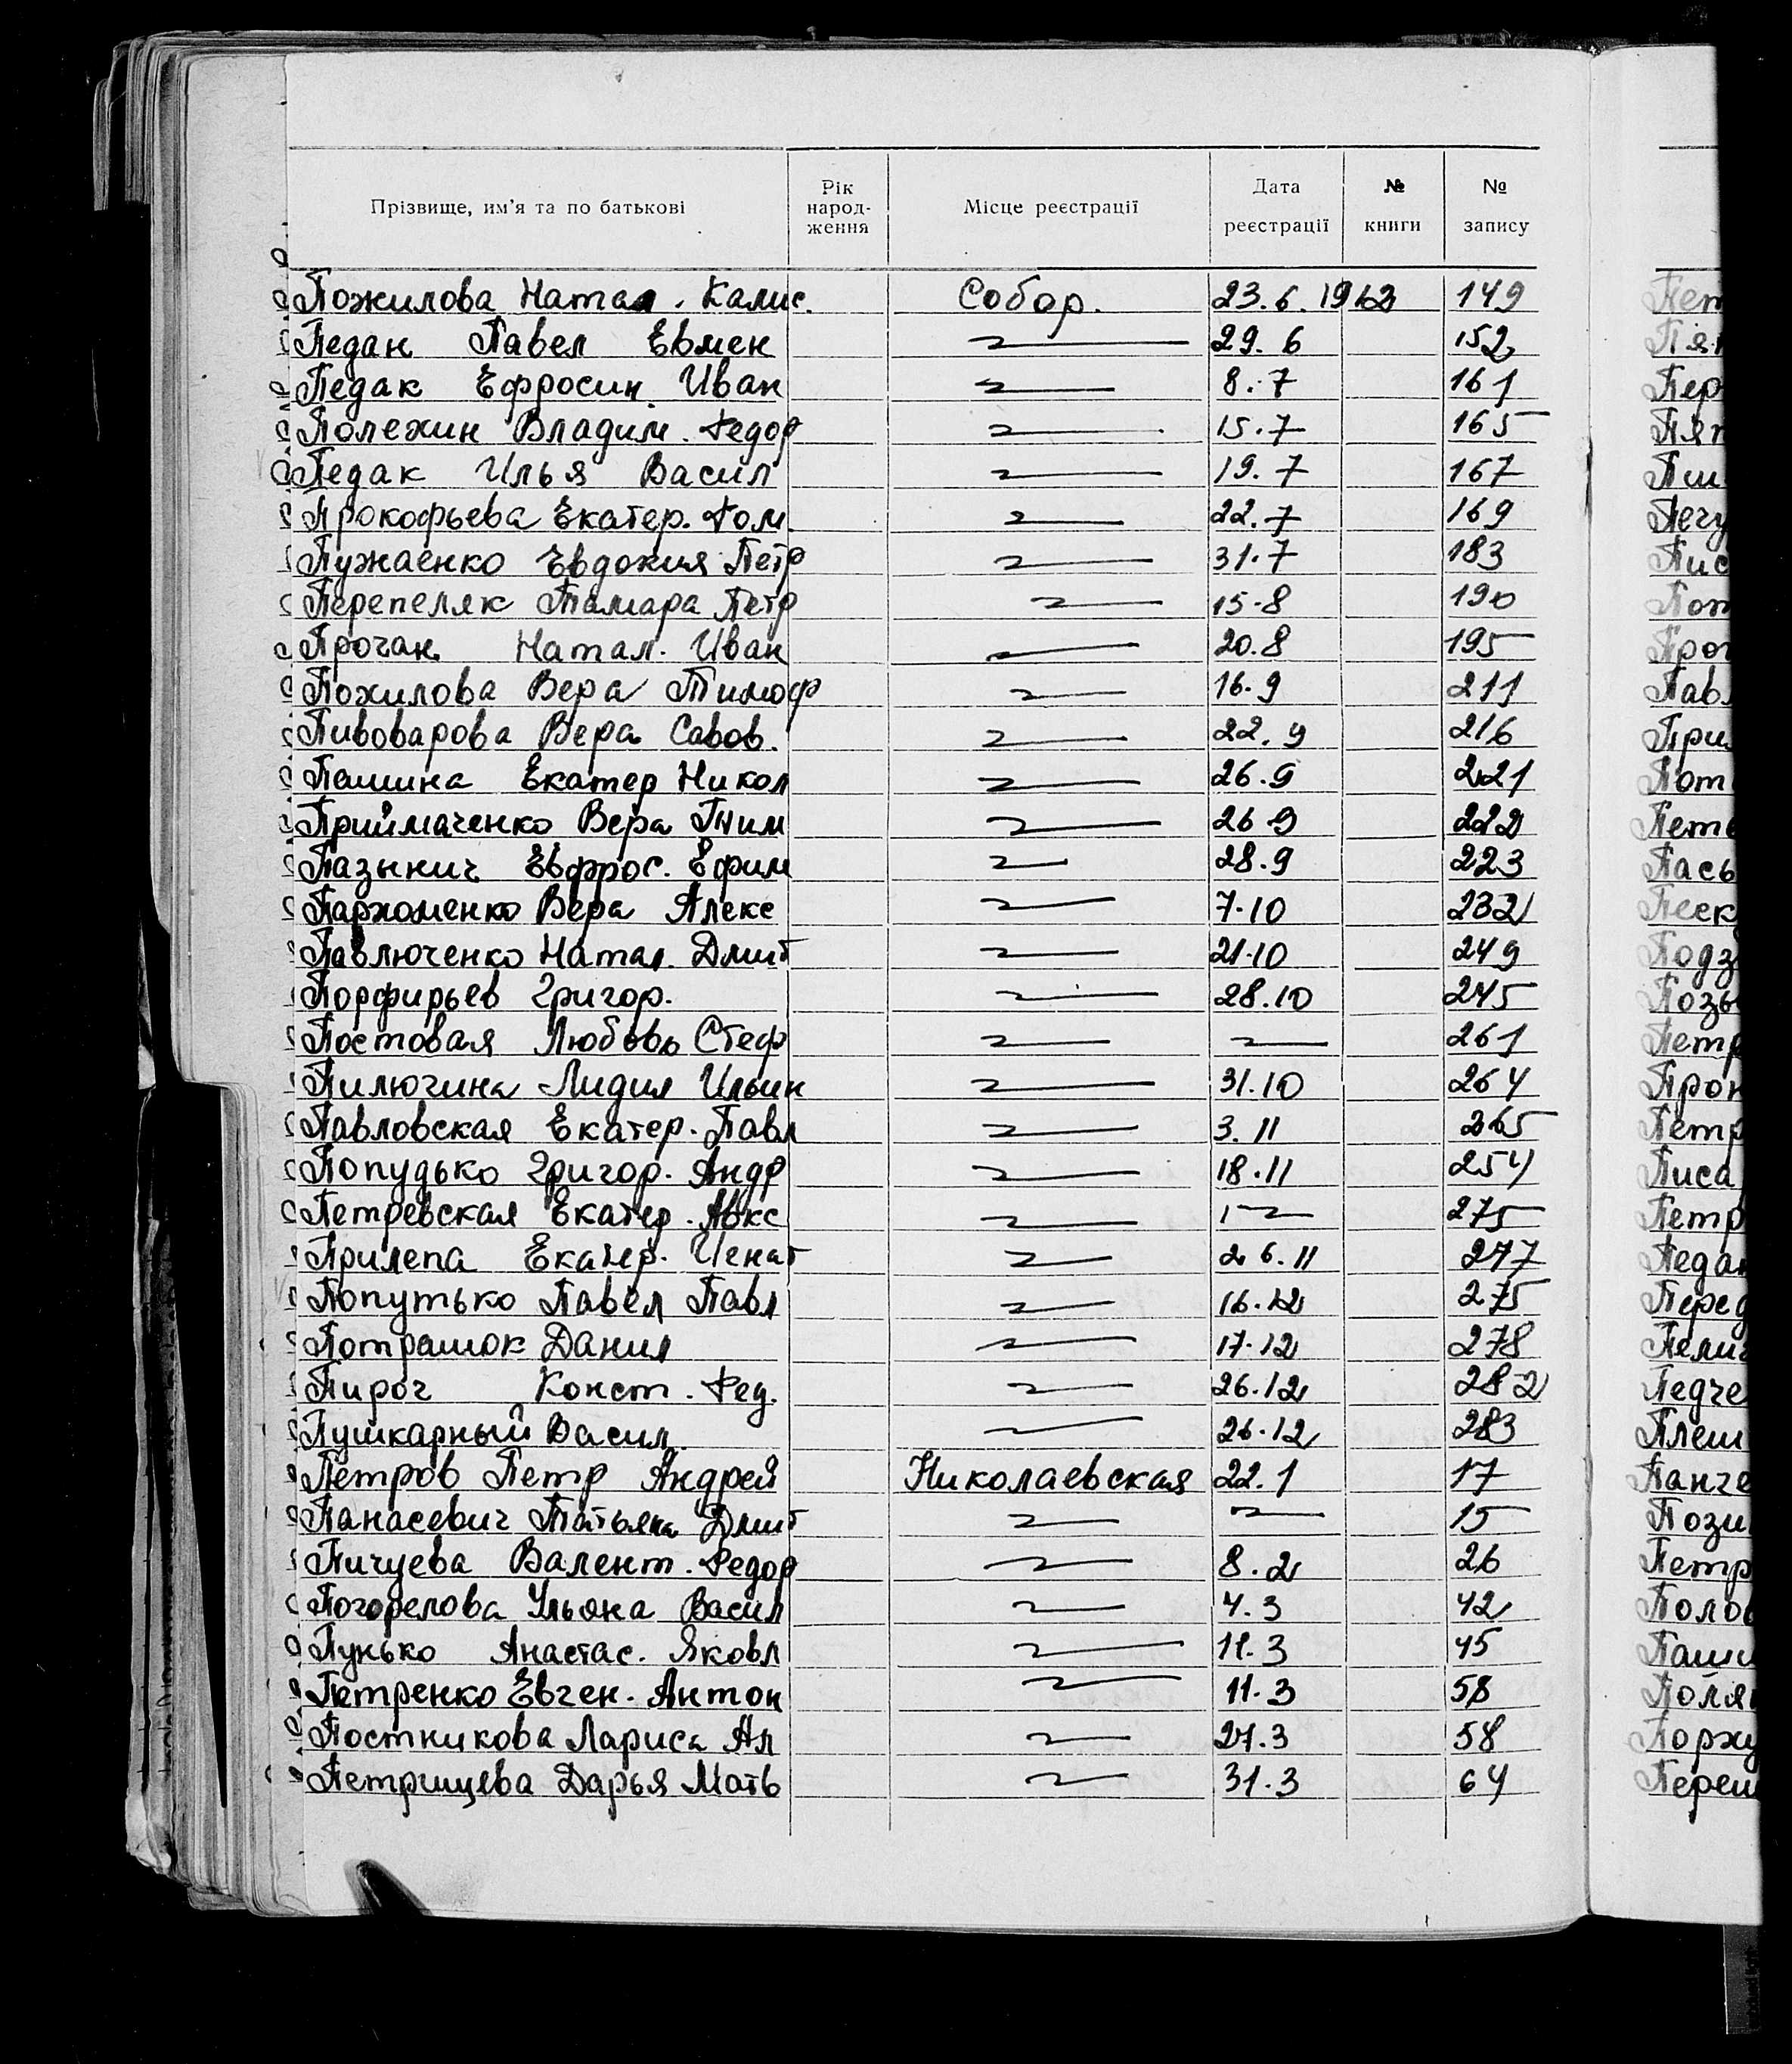 Прізвище, им'я та по батькові Рік народ-ження Місце реєстрації Дата реєстрації № книги № запису
Пожилова Натал. Калис. Собор. 23.6.1962 149
Педан Павел Евмен 29.6 152
Педак Ефросин. Иван 8.7 161
Полехин Владим. Федор 15.7 165
Педак Илья Васил 19.7 167
Прокофьева Екатер. Фом 22.7 169
Пужаенко Евдокия Петр 31.7 183
Перепеляк Тамара Петр 15.8 190
Прочан Натал. Иван 20.8 195
Пожилова Вера Тимоф 16.9 211
Пивоварова Вера Савов. 22.9 216
Пешина Екатер Никол 26.9 221
Приймаченко Вера Тим 26 9 222
Пазынич Евфрос. Ефим 28.9 223
Пархоменко Вера Алекс 7.10 232
Павлюченко Натал. Дмит 21.10 249
Порфирьев Григор. 28.10 245
Постовая Любовь Стеф 261
Пилюгина Лидия Ильин 31.10 264
Павловская Екатер. Павл 3.11 265
Попудько Григор. Андр 18.11 254
Петревская Екатер. 275
Прилепа Екатер. Игнат 26.11 277
Попутько Павел Павл 16.12 275
Потрашок Данил 17.12 278
Пирог Конст. Фед. 26.12 282
Пушкарный Васил. 26.12 283
Петров Петр Андрей Николаевская 22.1 17
Панасевич Татьяна Дмит 15
Пичуева Валент. Федор 8.2 26
Погорелова Ульяна Васил 4.3 42
Пунько Анастас. Яковл 11.3 45
Петренко Евген. Антон 11.3 58
Постникова Лариса Ал 27.3 58
Петрищева Дарья Матв 31.3 64